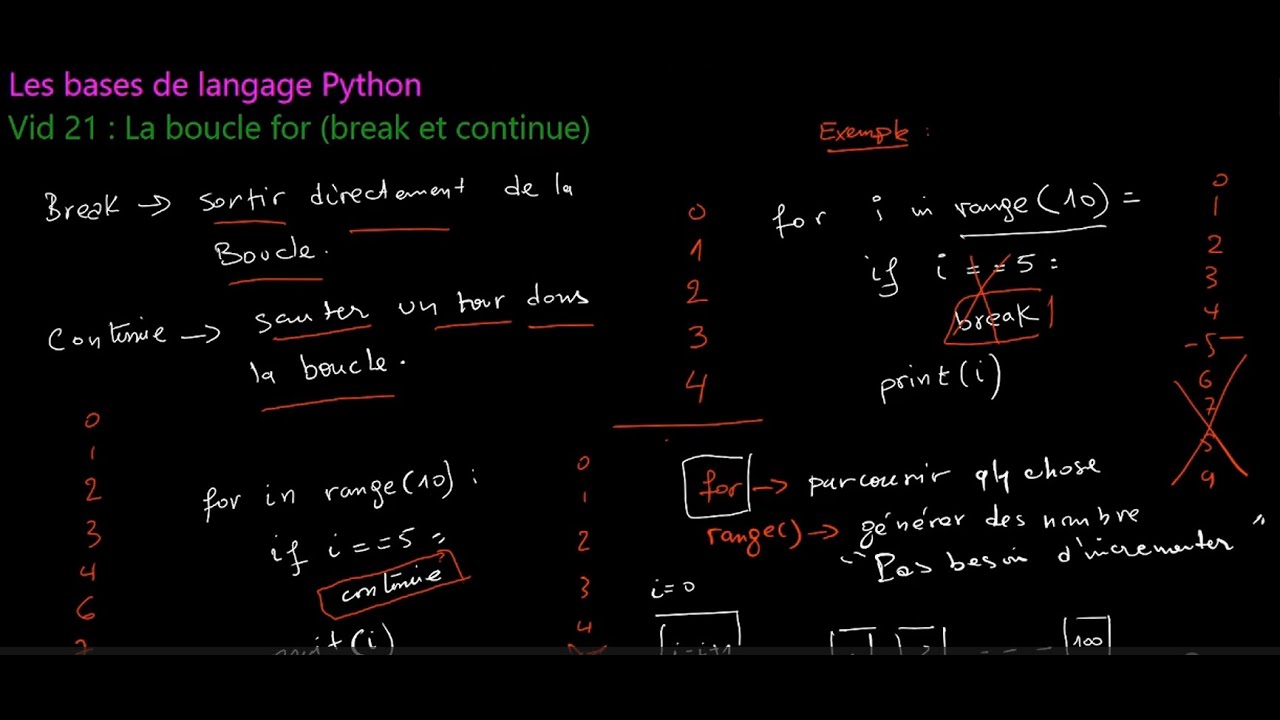 Les bases de langage Python
Vid 21 : La boucle for (break et continue)
Break → sortir directement de la
Boucle.
Continie → sauter un tour dans
la boucle.
0
1
2
3
4
6
7
for in range(10) :
if i == 5 :
continie
print(i)
0
1
2
3
4
0
1
2
3
4
Exemple :
for i in range(10) =
if i == 5 :
break
print(i)
0
1
2
3
4
-5-
6
7
9
for → parcourir qlq chose
range() → générer des nombre
"Pas besoin d'incrementer"
i=0
i=i+1
--- 100